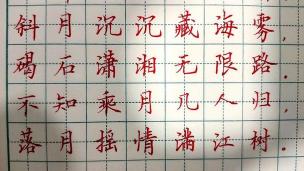 斜月沉沉藏海雾，
碣石潇湘无限路．
不知乘月几人归，
落月摇情满江树．